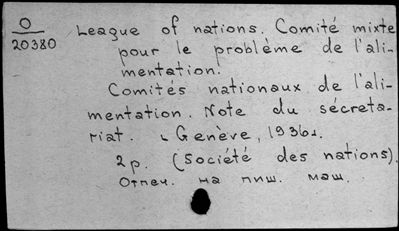 O
20380
League of nations. Comité mixte
pour le problème de l'ali-
mentation.
Comités nationaux de l'ali-
mentation. Note du sécreta-
riat. Genève, 1936.
2 p. (Société des nations).
Отпеч. на пиш. маш.